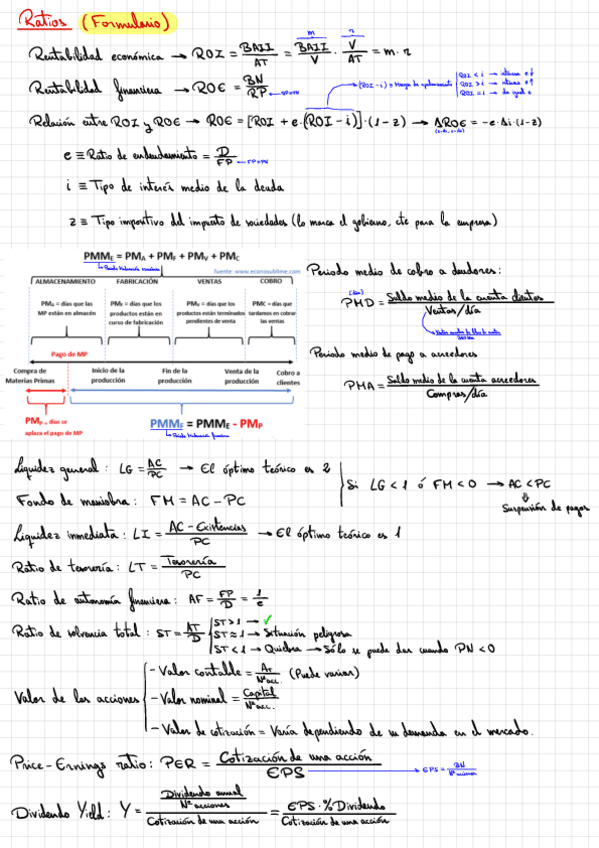 Ratios (Formulario)
m r
Rentabilidad económica → ROI = BAII/AT = BAII/V · V/AT = m · r
Rentabilidad financiera → ROE = BN/RP
(ROI - i) ≡ Margen de apalancamiento { ROI < i →
ROI > i →
ROI = i →
Relación entre ROI y ROE → ROE = [ROI + e · (ROI - i)] · (1 - z) → ΔROE = -e · Δi · (1 - z)
e ≡ Ratio de endeudamiento = D/FP
i ≡ Tipo de interés medio de la deuda
z ≡ Tipo impositivo del impuesto de sociedades (lo marca el gobierno, cte para la empresa)
PMME = PMA + PMF + PMV + PMC
fuente: www.econosublime.com
ALMACENAMIENTO FABRICACIÓN VENTAS COBRO
PMA = días que las MP están en almacén
PMF = días que los productos están en curso de fabricación
PMV = días que los productos están terminados pendientes de venta
PMC = días que tardamos en cobrar las ventas
Pago de MP
Compra de Materias Primas
Inicio de la producción
Fin de la producción
Venta de la producción
Cobro a clientes
PMP = días se aplaza el pago de MP
PMMF = PMME - PMP
Periodo medio de cobro a deudores:
(días)
PMD = Saldo medio de la cuenta clientes / Ventas/día
Periodo medio de pago a acreedores
PMA = Saldo medio de la cuenta acreedores / Compras/día
Liquidez general: LG = AC/PC → El óptimo teórico es 2
Fondo de maniobra: FM = AC - PC
Si LG < 1 ó FM < 0 → AC < PC
⇓
Suspensión de pagos
Liquidez inmediata: LI = AC - Existencias / PC → El óptimo teórico es 1
Ratio de tesorería: LT = Tesorería / PC
Ratio de autonomía financiera: AF = FP/D = 1/e
Ratio de solvencia total: ST = AT/D { ST > 1 → ✓
ST ≈ 1 → Situación peligrosa
ST < 1 → Quiebra → Sólo se puede dar cuando PN < 0
Valor de las acciones { - Valor contable = AT/Nºacc. (Puede variar)
- Valor nominal = Capital/Nºacc.
- Valor de cotización = Varía dependiendo de su demanda en el mercado.
Price-Ernings ratio: PER = Cotización de una acción / EPS → EPS = BN/Nº acciones
Dividendo Yield: Y = Dividendo anual / Nº acciones / Cotización de una acción = EPS · % Dividendo / Cotización de una acción